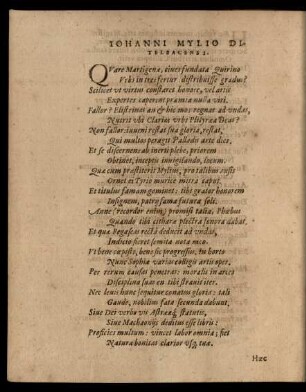 IOHANNI MYLIO DI-
TELBACENSI.
QVare Martigenæ, ciues fundata Quirino
Vrbi in tres fertur distribuisse gradus?
Scilicet vt virtus constaret honore, vel artis
Expertes caperent præmia nulla viri.
Fallor? Elistrimæ an & hic mos regnat ad vndas,
Nutrit vbi Claros vrbs Deas?
Non fallor: iuueni restat sua gloria, restat,
Qui multus peragit Palladis arte dies.
Et se discernens ab inerti plebe, priorem
Obtinet, inceptis inuigilando, locum.
Qua cum præstiteris Myli, pro talibus ausis
Ornet in Tyrio murice mitra caput,
Et titulus famam geminet: tibi gratet honorem
Insignem, patrj fama futura soli.
Anne (recordor enim) promisi talia, Phœbus
Quando tibi cithara plectra sonora dabat.
Et qua Begaseas recta deducit ad vndas,
Indicio fieret semita nota meo.
Vt bene cœpisti, bene sic progressus, tu horto
Nunc Sophiæ varia colligis artis opes,
Per rerum causas penetras: moralis in arces
Disciplina suas eu tibi stranit iter.
Nec leuis hunc sequitur conatus gloria: tali
Gaude, nobilium fata secunda dabunt,
Siue Dei verbo vis Astrææq́ statutis,
Siue Machaonijs deditus esse libris:
Proficies multum: vincet labor omnia; fiet
Natura bonitas clarior vsq́ tuæ.
Hæc